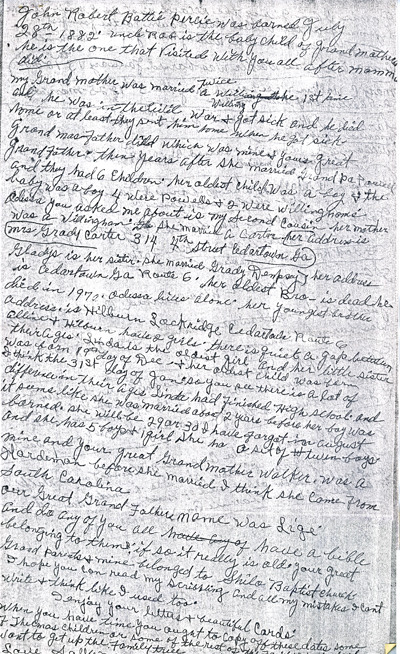 John Robert Battie percie was borned July
28th 1882 uncle Rob is the baby child of grand mother
he is the one that visited with you all after mamma
died
my Grand mother was married twice a Willing he 1st
he was in the civil War & got sick and he did
home or at least they sent him home when he got sick
Grand mas Father died which was mine & yours great
Grandfather. then years after she married Grand Pa Powell
and they had 6 children her oldest child was a boy & the
baby was a boy 4 were Powells & 2 were Willinghams
Odessa you asked me about is my Second Cousin her mother
was a Willingham she married a Carter her address is
Mrs Grady Carter 314 4th Street Cedartown Ga
Gladys is her sister she married Grady Dempsey her address
is Cedartown Ga Route 6 her oldest Bro is dead he
died in 1970 Odessa lives alone her youngest brother
Address is Hilburn Lockridge Cedartown Route 6
Olline & Hilburn have 2 girls there is quiet a gap between
their ages Linda is the oldest girl and her little sister
was born 19 day of Dec & her oldest child was born
I think the 31st day of Jan so you see there is a lot of
difference in their ages Linda had finished High school and
it seems like she was married about 2 years before her boy was
borned she will be 29 or 30 I have forgot in August
and she has 5 boys & 1 girl She has a set of twin boys
mine and your great Grand Mother Walker was a
Hardeman before she married I think she came from
South Carolina
our Great Grand Fathers name was Lige
And do any of you all have a bible
belonging to them if so it really is old your great
Grand parents & mine belonged to Shilo Baptist church
I hope you can read my scribbling and all my mistakes I cant
write & think like I used too
I enjoy your letters & beautiful cards
When you have time you ought to copy of these dates some
of Thomas children or some of the rest of
want to get up the family tree
Love